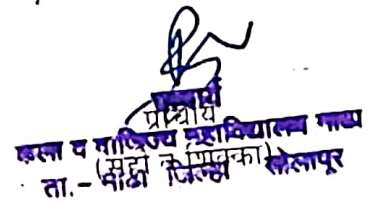 प्राचार्य
कला व वाणिज्य महाविद्यालय माढा
(सही व शिक्का)
ता. - माढा जिल्हा सोलापूर